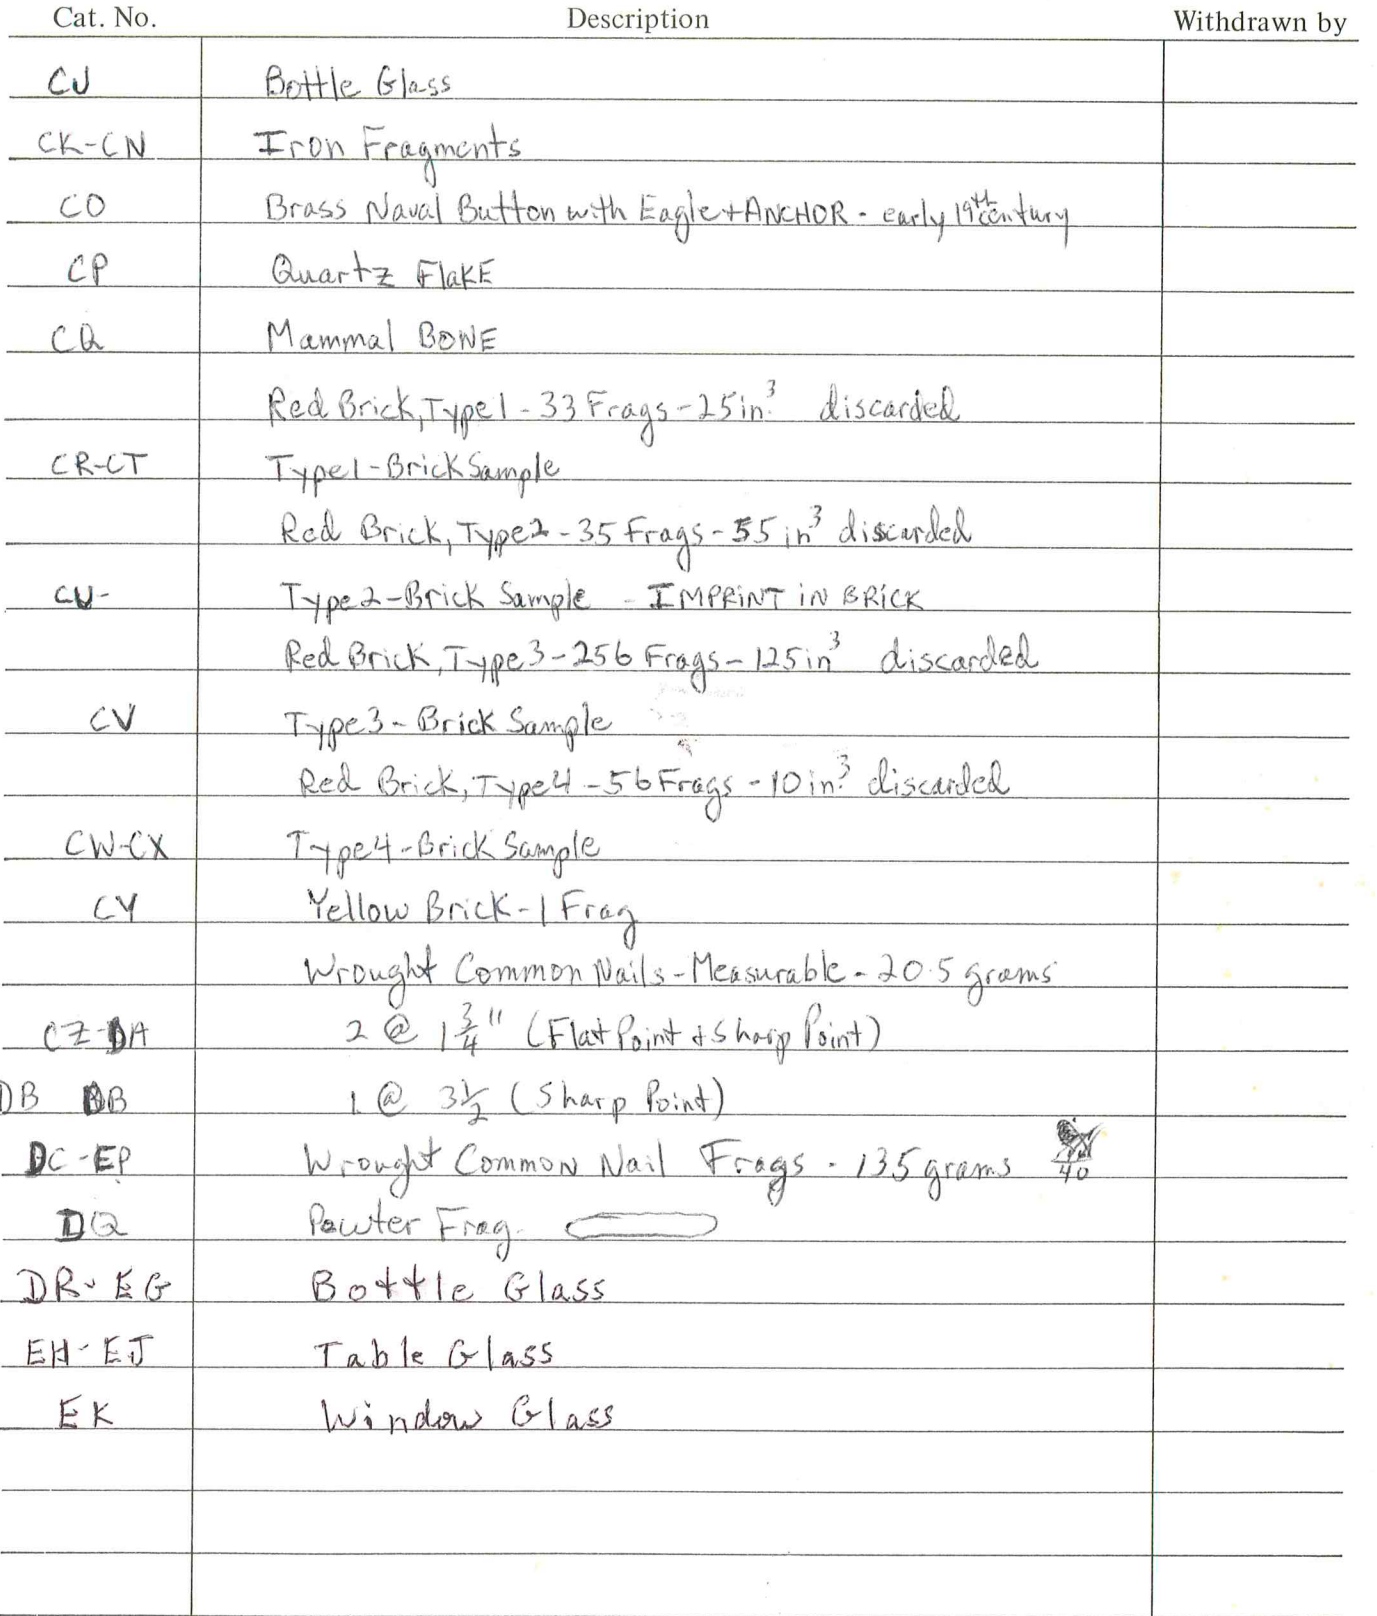 Cat. No. Description Withdrawn by
CJ Bottle Glass
CK-CN Iron Fragments
CO Brass Naval Button with Eagle + ANCHOR - early 19th century
CP Quartz FlaKE
CQ Mammal BONE
Red Brick, Type 1 - 33 Frags - 25 in.³ discarded
CR-CT Type 1 - Brick Sample
Red Brick, Type 2 - 35 Frags - 55 in³ discarded
CU- Type 2 - Brick Sample - IMPRINT IN BRICK
Red Brick, Type 3 - 256 Frags - 125 in³ discarded
CV Type 3 - Brick Sample
Red Brick, Type 4 - 56 Frags - 10 in.³ discarded
CW-CX Type 4 - Brick Sample
CY Yellow Brick - 1 Frag
Wrought Common Nails - Measurable - 20.5 grams
CZ-DA 2 @ 1 3/4" (Flat Point + Sharp Point)
DB DB 1 @ 3 1/2 (Sharp Point)
DC-EP Wrought Common Nail Frags - 135 grams 40
DQ Pewter Frag.
DR-EG Bottle Glass
EH-EJ Table Glass
EK Window Glass